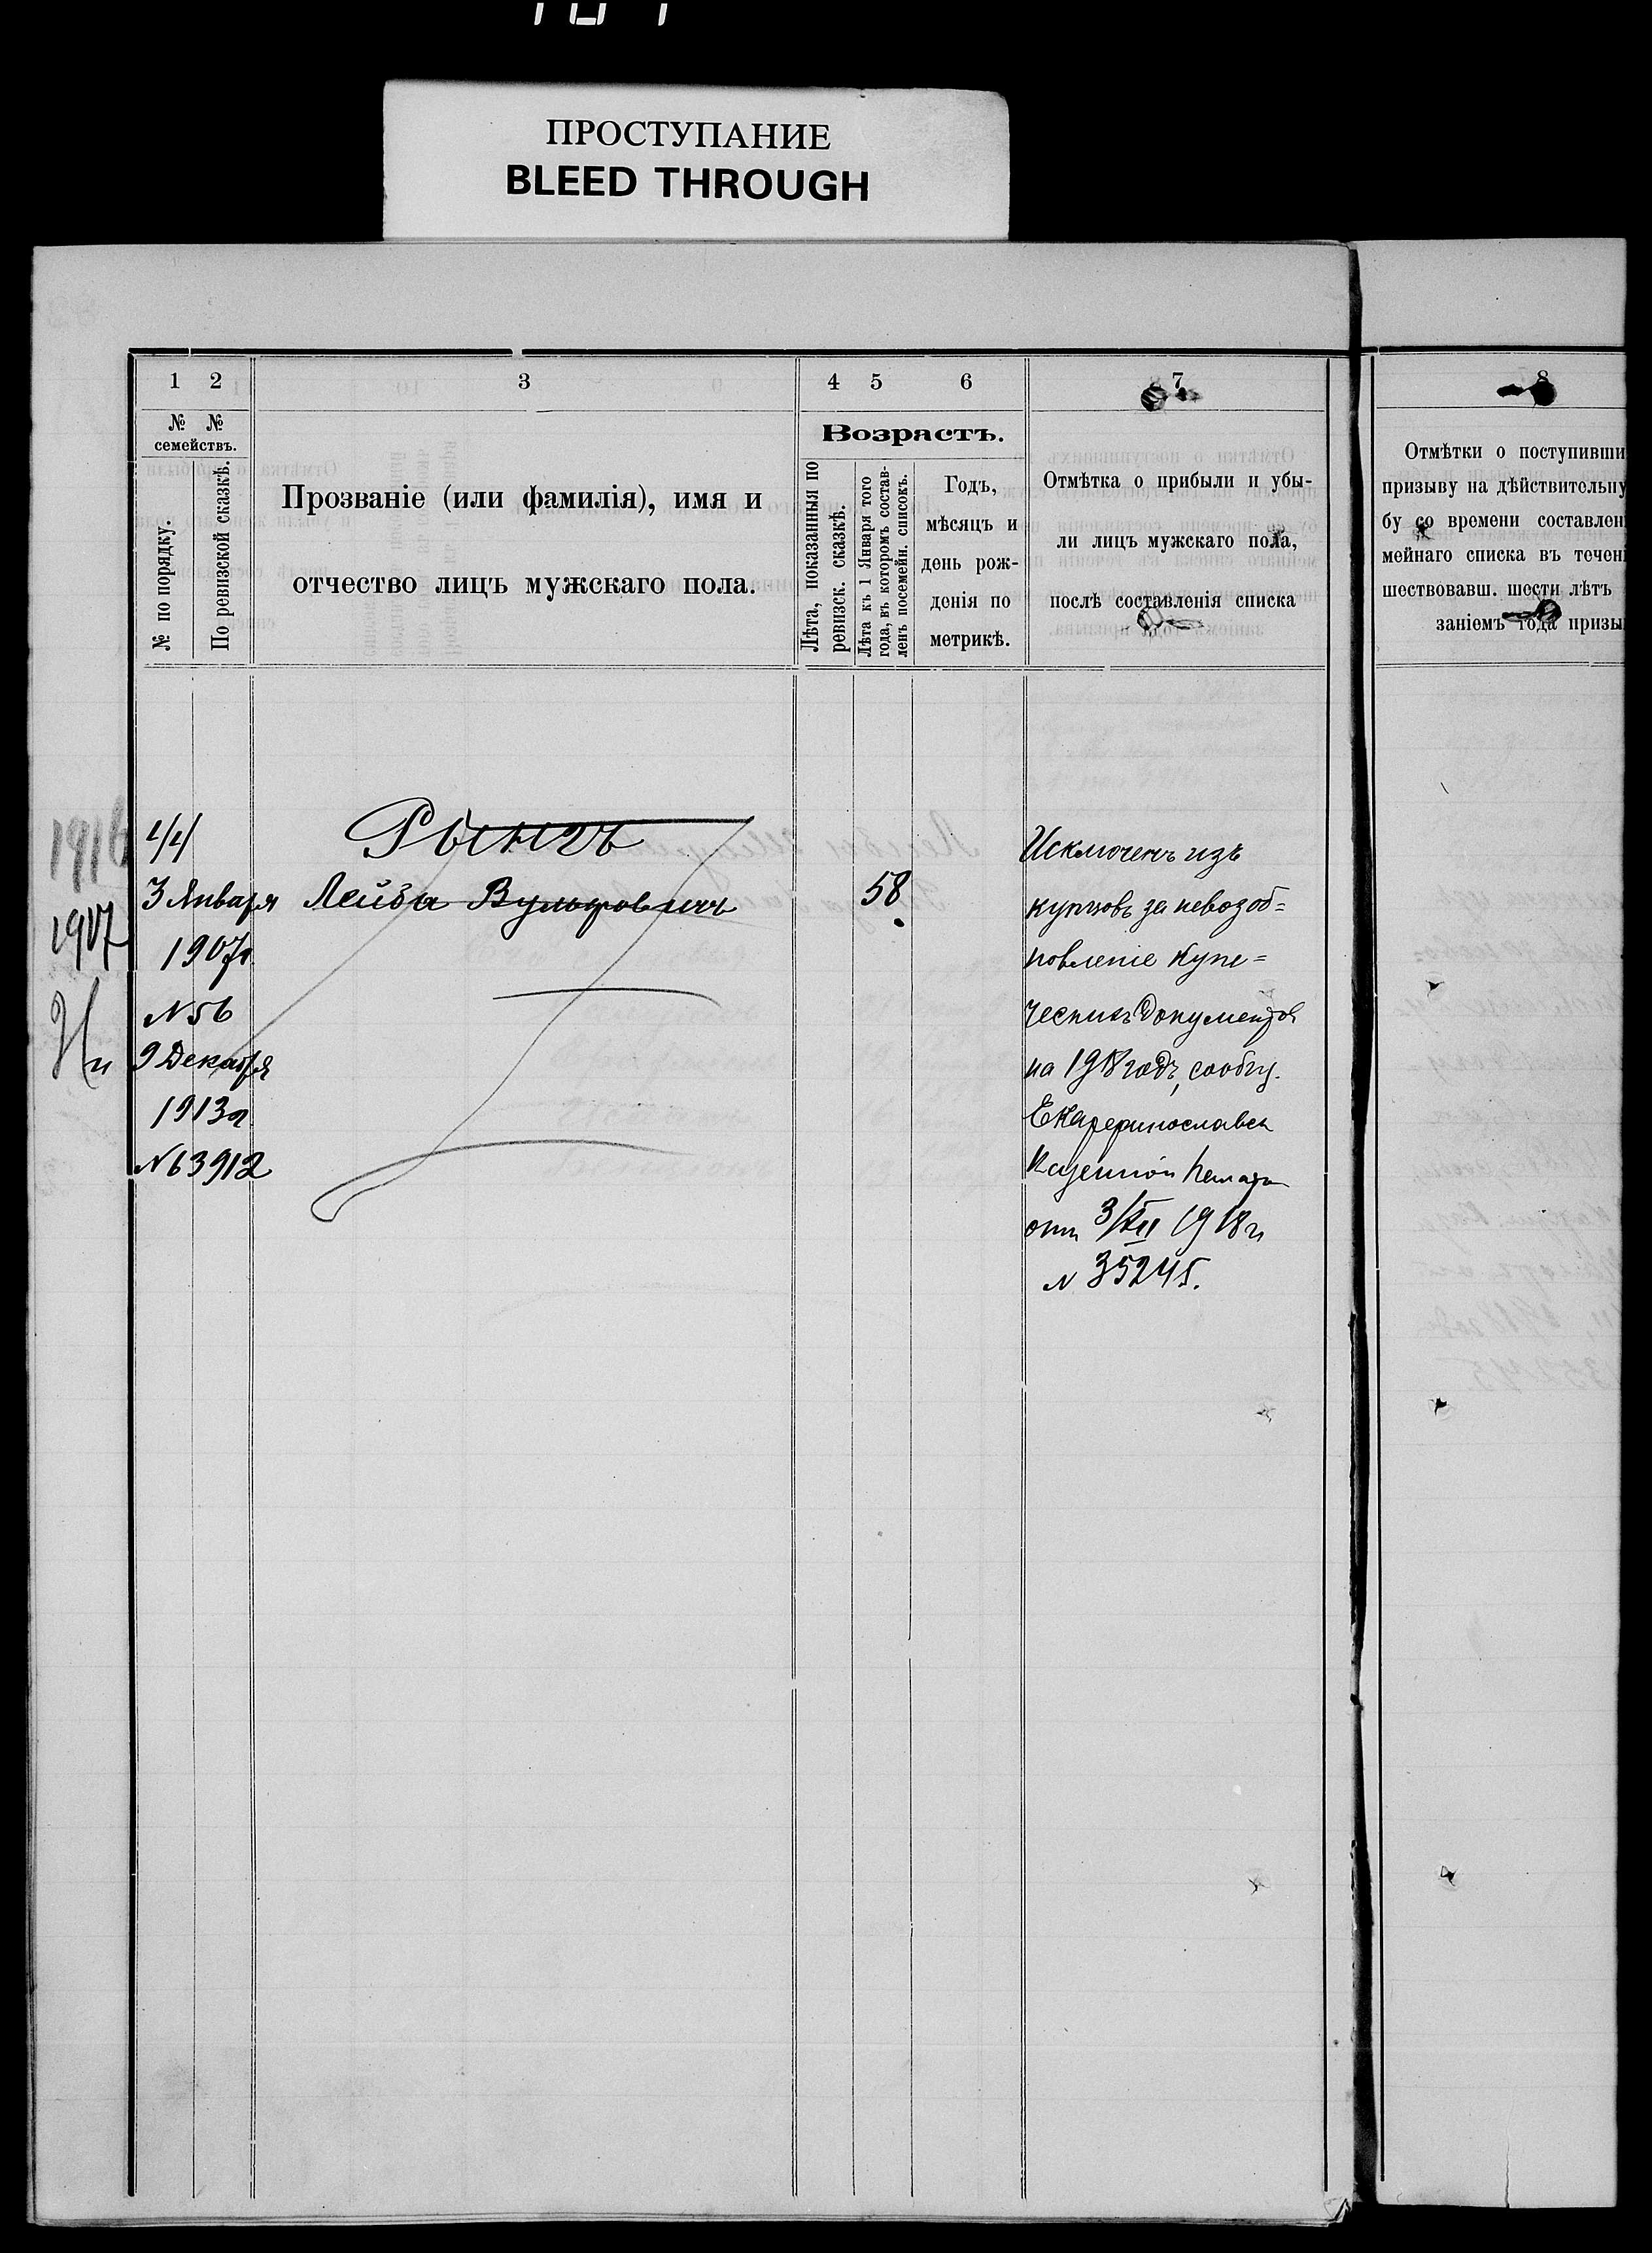 ПРОСТУПАНИЕ
BLEED THROUGH
1 2 3 4 5 6 7 8
№ №
семействъ.
№ по порядку.
По ревизской сказкѣ.
Прозваніе (или фамилія), имя и
отчество лицъ мужскаго пола.
Возрастъ.
Лѣта, показанныя по
ревизск. сказкѣ.
Лѣта къ 1 Января того
года, въ которомъ состав-
ленъ посемейн. списокъ.
Годъ,
мѣсяцъ и
день рож-
денія по
метрикѣ.
Отмѣтка о прибыли и убы-
ли лицъ мужскаго пола,
послѣ составленія списка
Отмѣтки о поступивши
призыву на дѣйствительну
бу со времени составлен
мейнаго списка въ течен
шествовавш. шести лѣтъ
заніемъ года призы
1916
1917
44
3 Января
1907г.
№ 56
9 Декабря
1913г.
№ 63912
Рынгъ
Лейба Вульфовичъ
58
Исключенъ изъ
купцовъ за невозоб=
новленіе купе=
ческихъ документов
на 1918 годъ, сообщ.
Екатеринославск
Казенной Палаты
отъ 3/XII 1918 г.
№ 35245.